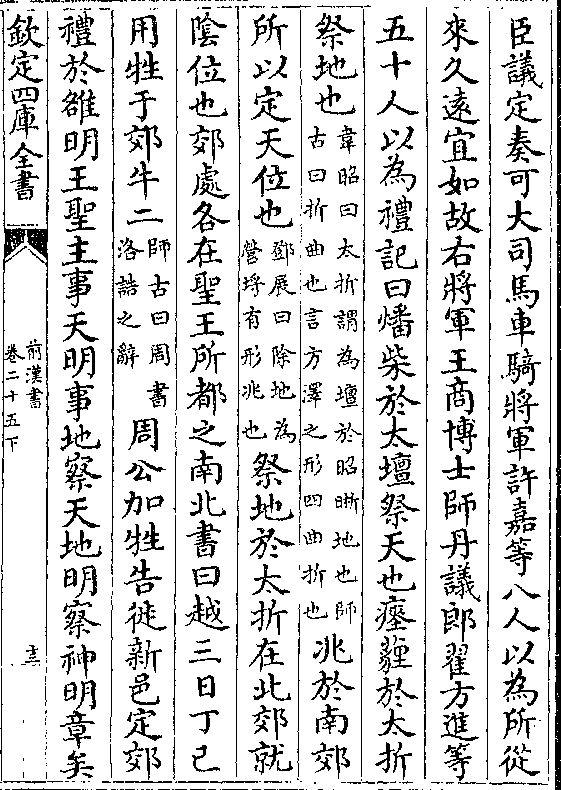 臣議定奏可大司馬車騎將軍許嘉等八人以為所從
來久遠宜如故右將軍王商博士師丹議郎翟方進等
五十人以為禮記曰燔柴於太壇祭天也瘞薶於太折
祭地也韋昭曰太折謂為壇於昭晣地也師古曰折曲也言方澤之形四曲折也兆於南郊
所以定天位也鄧展曰除地為營埒有形兆也祭地於太折在北郊就
陰位也郊處各在聖王所都之南北書曰越三日丁巳
用牲于郊牛二師古曰周書洛誥之辭周公加牲告徙新邑定郊
禮於雒明王聖主事天明事地察天地明察神明章矣
欽定四庫全書
前漢書
卷二十五下
十三